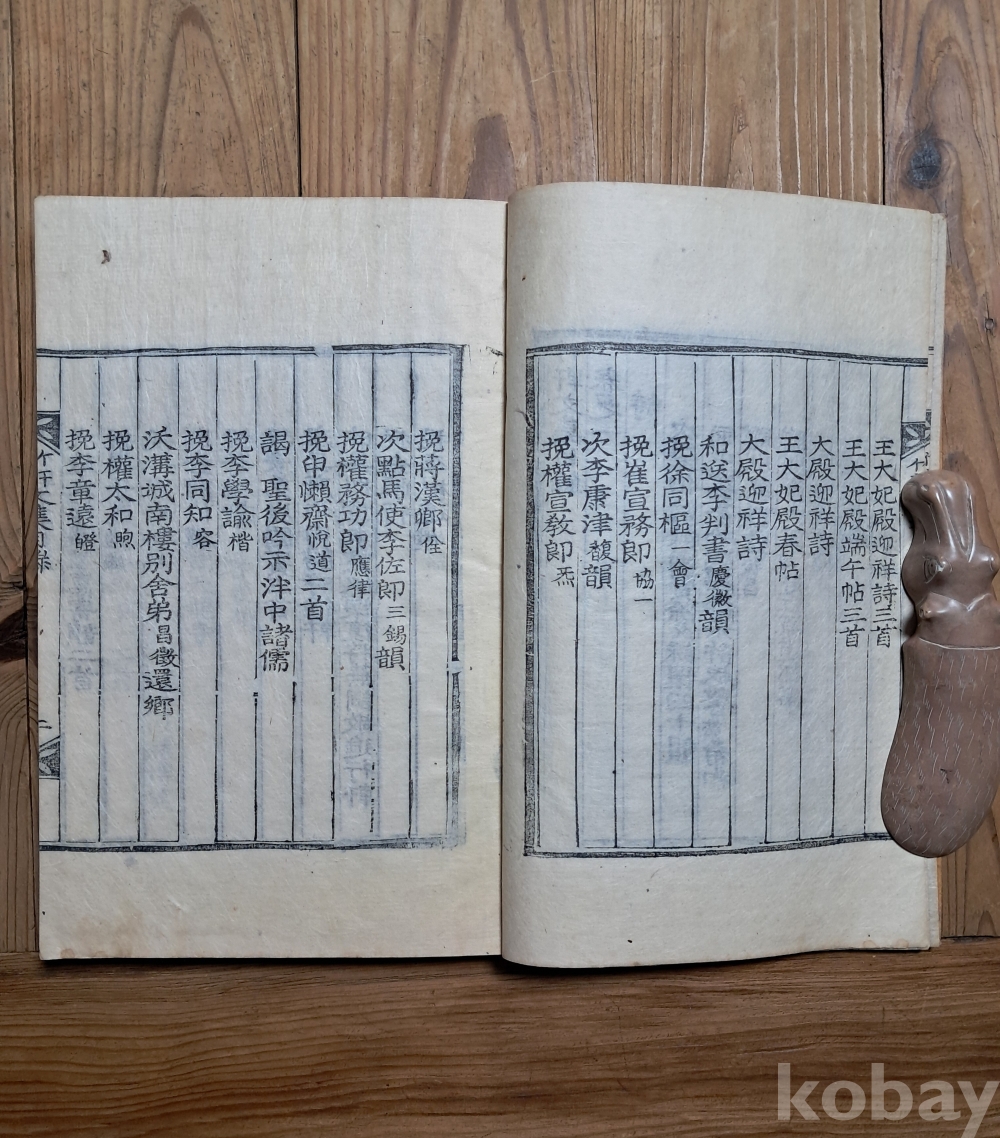 王大妃殿迎祥詩三首
王大妃殿端午帖三首
大殿迎祥詩
王大妃殿春帖
大殿迎祥詩
和送李判書慶徽韻
挽徐同樞一會
挽崔宣務郎協一
次李康津馥韻
挽權宣敎郎炁
挽蔣漢鄉佺
次點馬使李佐郎三錫韻
挽權務功郎應律
挽申懶齋悅道二首
謁聖後吟示泮中諸儒
挽李學諭楷
挽李同知容
沃溝城南樓別舍弟昌徵還鄉
挽權太和煦
挽李章遠皚
二
kobay